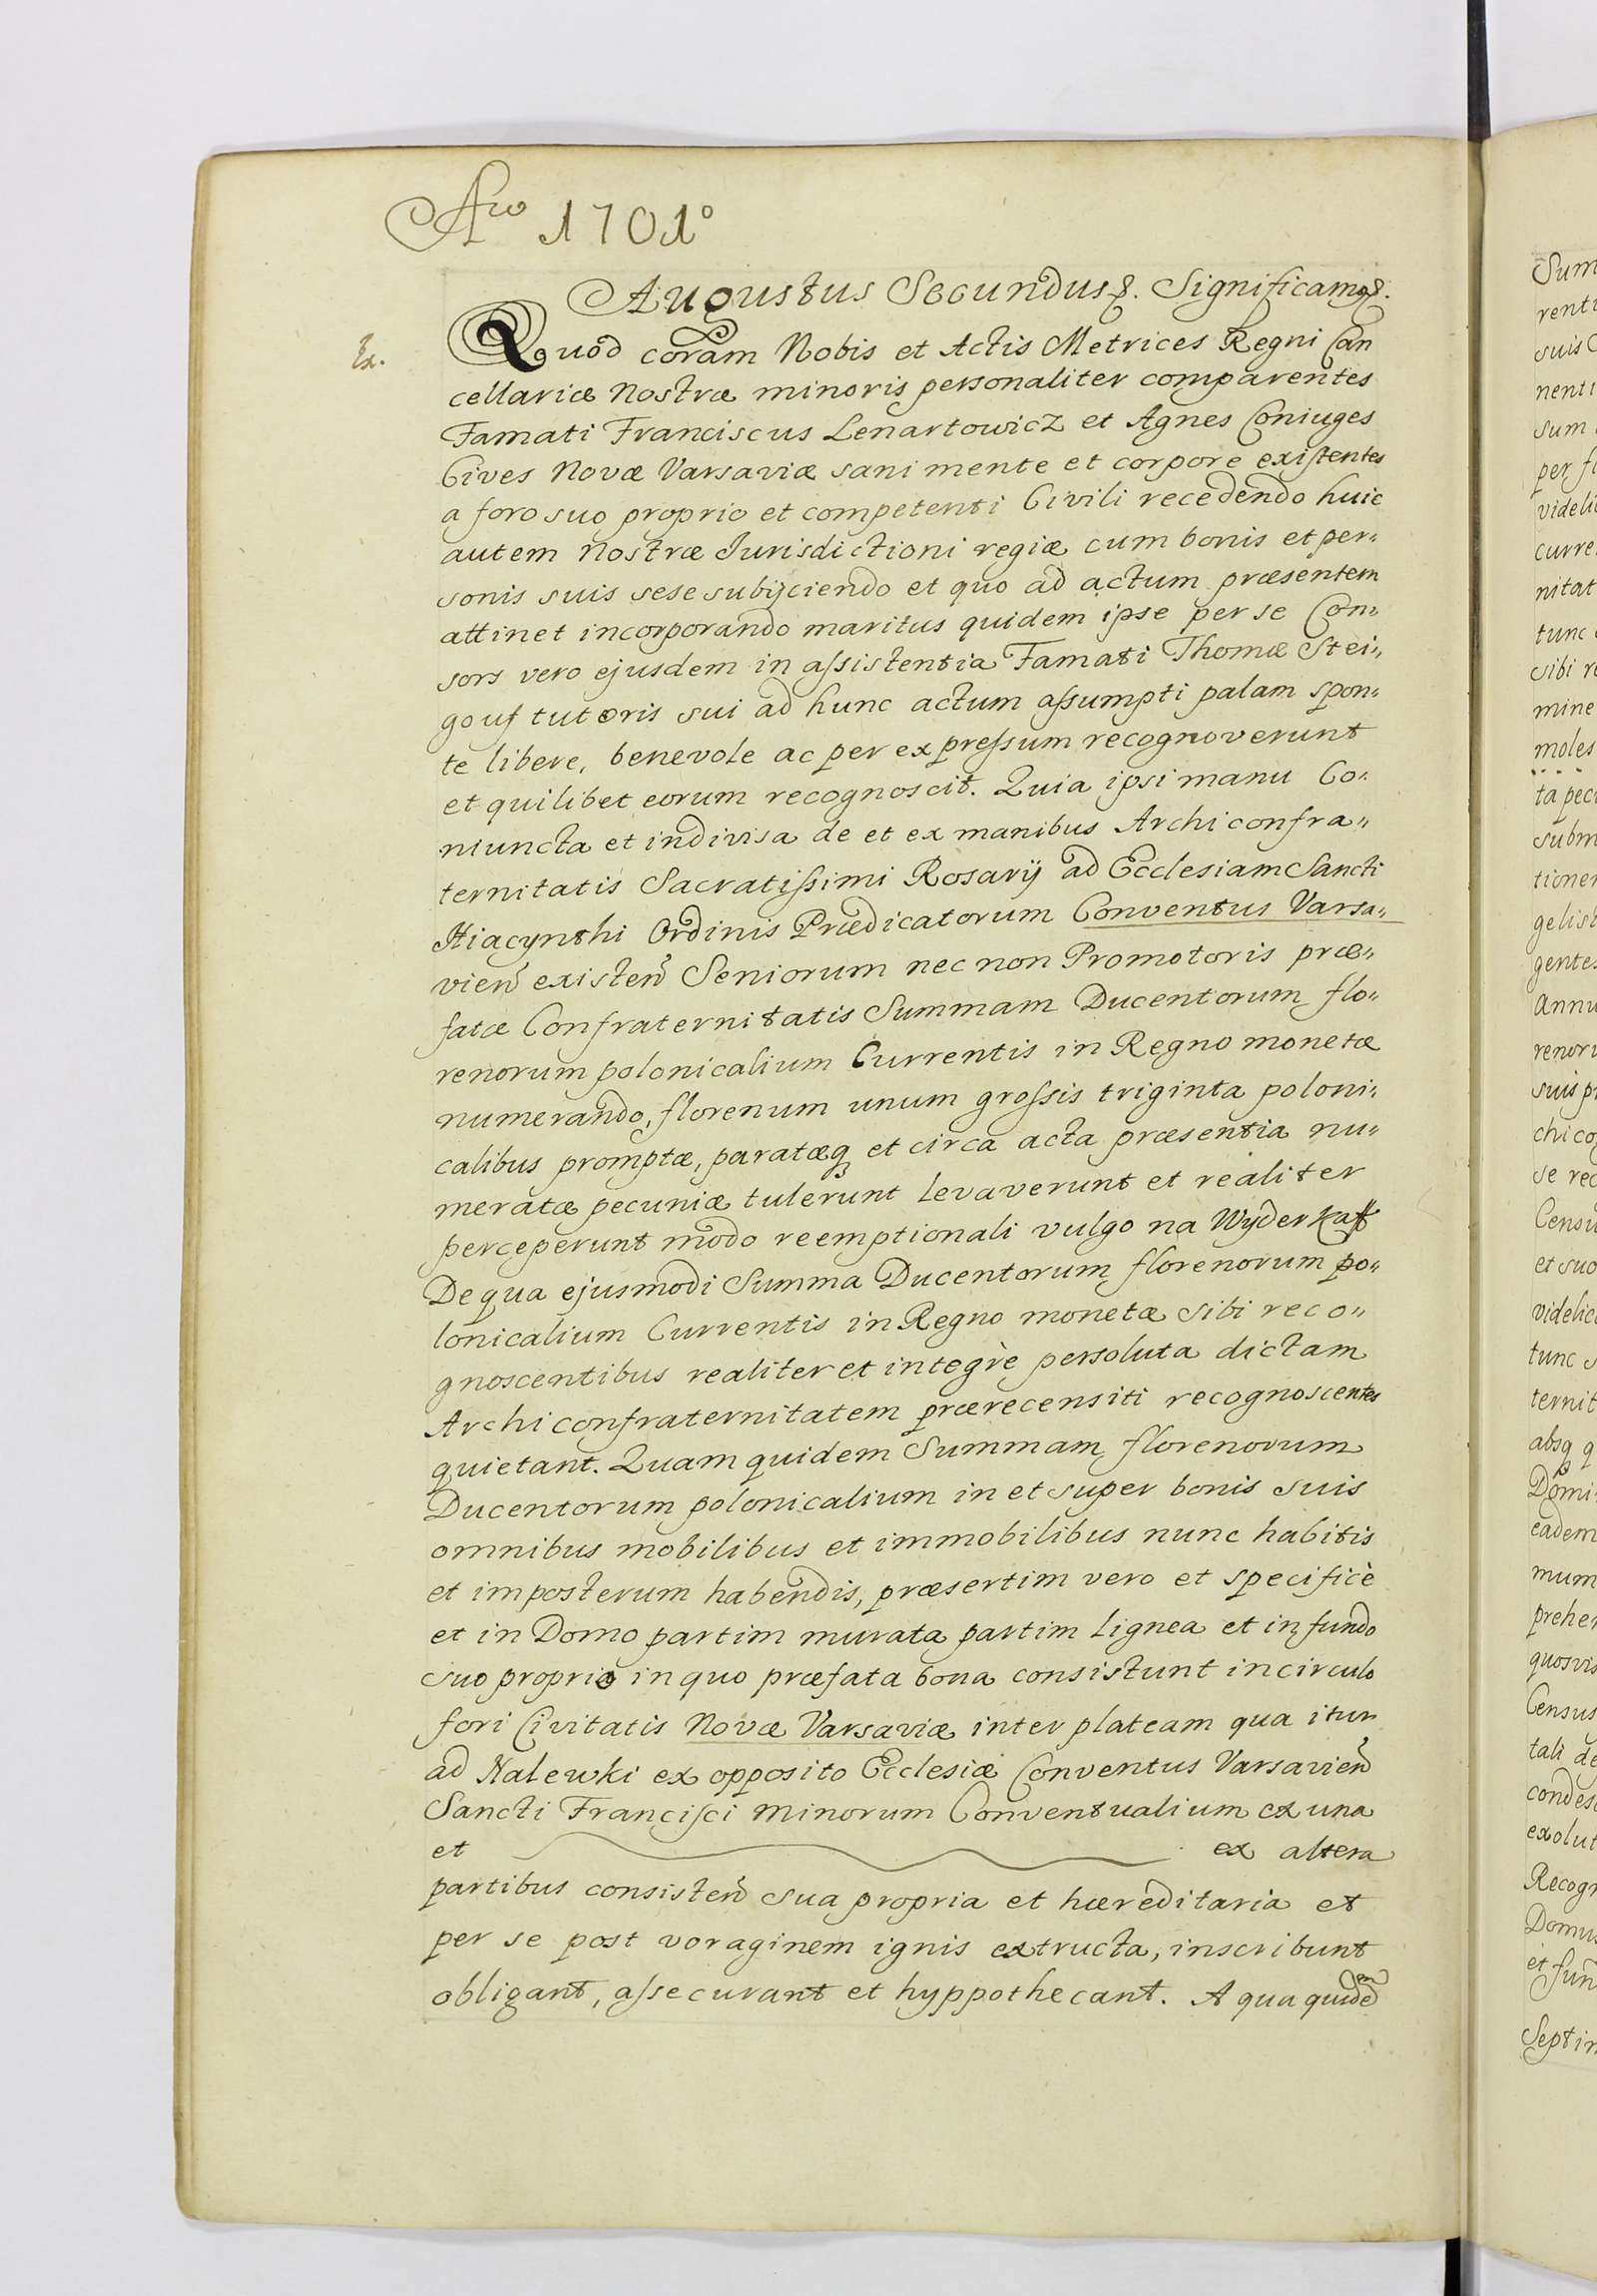 Ao 1701o
Augustus Secundus &. Significamus &.
Ex.
Quod coram Nobis et Actis Metrices Regni Can
cellariæ nostræ minoris personaliter comparentes
Famati Franciscus Lenartowicz et Agnes Coniuges
Cives Novæ Varsaviæ sani mente et corpore existentes
a foro suo proprio et competenti Civili recedendo huic
autem nostræ Jurisdictioni regiæ cum bonis et per„
sonis suis sese subijciendo et quo ad actum præsentem
attinet incorporando maritus quidem ipse per se Con„
sors vero ejusdem in assistentia Famati Thomæ Stei„
gouf tutoris sui ad hunc actum assumpti palam spon„
te libere, benevole ac per expressum recognoverunt
et quilibet eorum recognoscit. Quia ipsi manu Co„
niuncta et indivisa de et ex manibus Archiconfra„
ternitatis Sacratissimi Rosarij ad Ecclesiam Sancti
Hiacynthi Ordinis Prædicatorum Conventus Varsa„
vien existen Seniorum nec non Promotoris præ„
fatæ Confraternitatis Summam Ducentorum flo„
renorum polonicalium Currentis in Regno monetæ
numerando, florenum unum grossis triginta poloni„
calibus promptæ, paratæq et circa acta præsentia nu„
meratæ pecuniæ tulerunt levaverunt et realiter
perceperunt modo reemptionali vulgo na Wyderkaff
De qua ejusmodi Summa Ducentorum florenorum po„
lonicalium Currentis in Regno monetæ sibi reco„
gnoscentibus realiter et integrè persoluta dictam
Archiconfraternitatem prærecensiti recognoscentes
quietant. Quam quidem Summam florenorum
Ducentorum polonicalium in et super bonis suis
omnibus mobilibus et immobilibus nunc habitis
et imposterum habendis, præsertim vero et specificè
et in Domo partim murata partim lignea et in fundo
suo proprio in quo præfata bona consistunt in circulo
fori Civitatis Novæ Varsaviæ inter plateam qua itur
ad Nalewki ex opposito Ecclesiæ Conventus Varsavien
Sancti Francisci minorum Conventualium ex una
et ex altera
partibus consisten sua propria et hæreditaria et
per se post voraginem ignis extructa, inscribunt
obligant, assecurant et hyppothecant. A qua quidem
Sum
renti
suis
nenti
sum
per
videli
curre
nitat
tunc
sibi
mine
moles
ta pec
subm
tione
gelis
gentes
annu
renor
suis
chico
se rec
Censu
et suo
videlic
tunc
ternit
absq
Domi
eadem
mum
prehe
quosvis
Census
tali de
condes
exolut
Recog
Domus
et fun
Septim